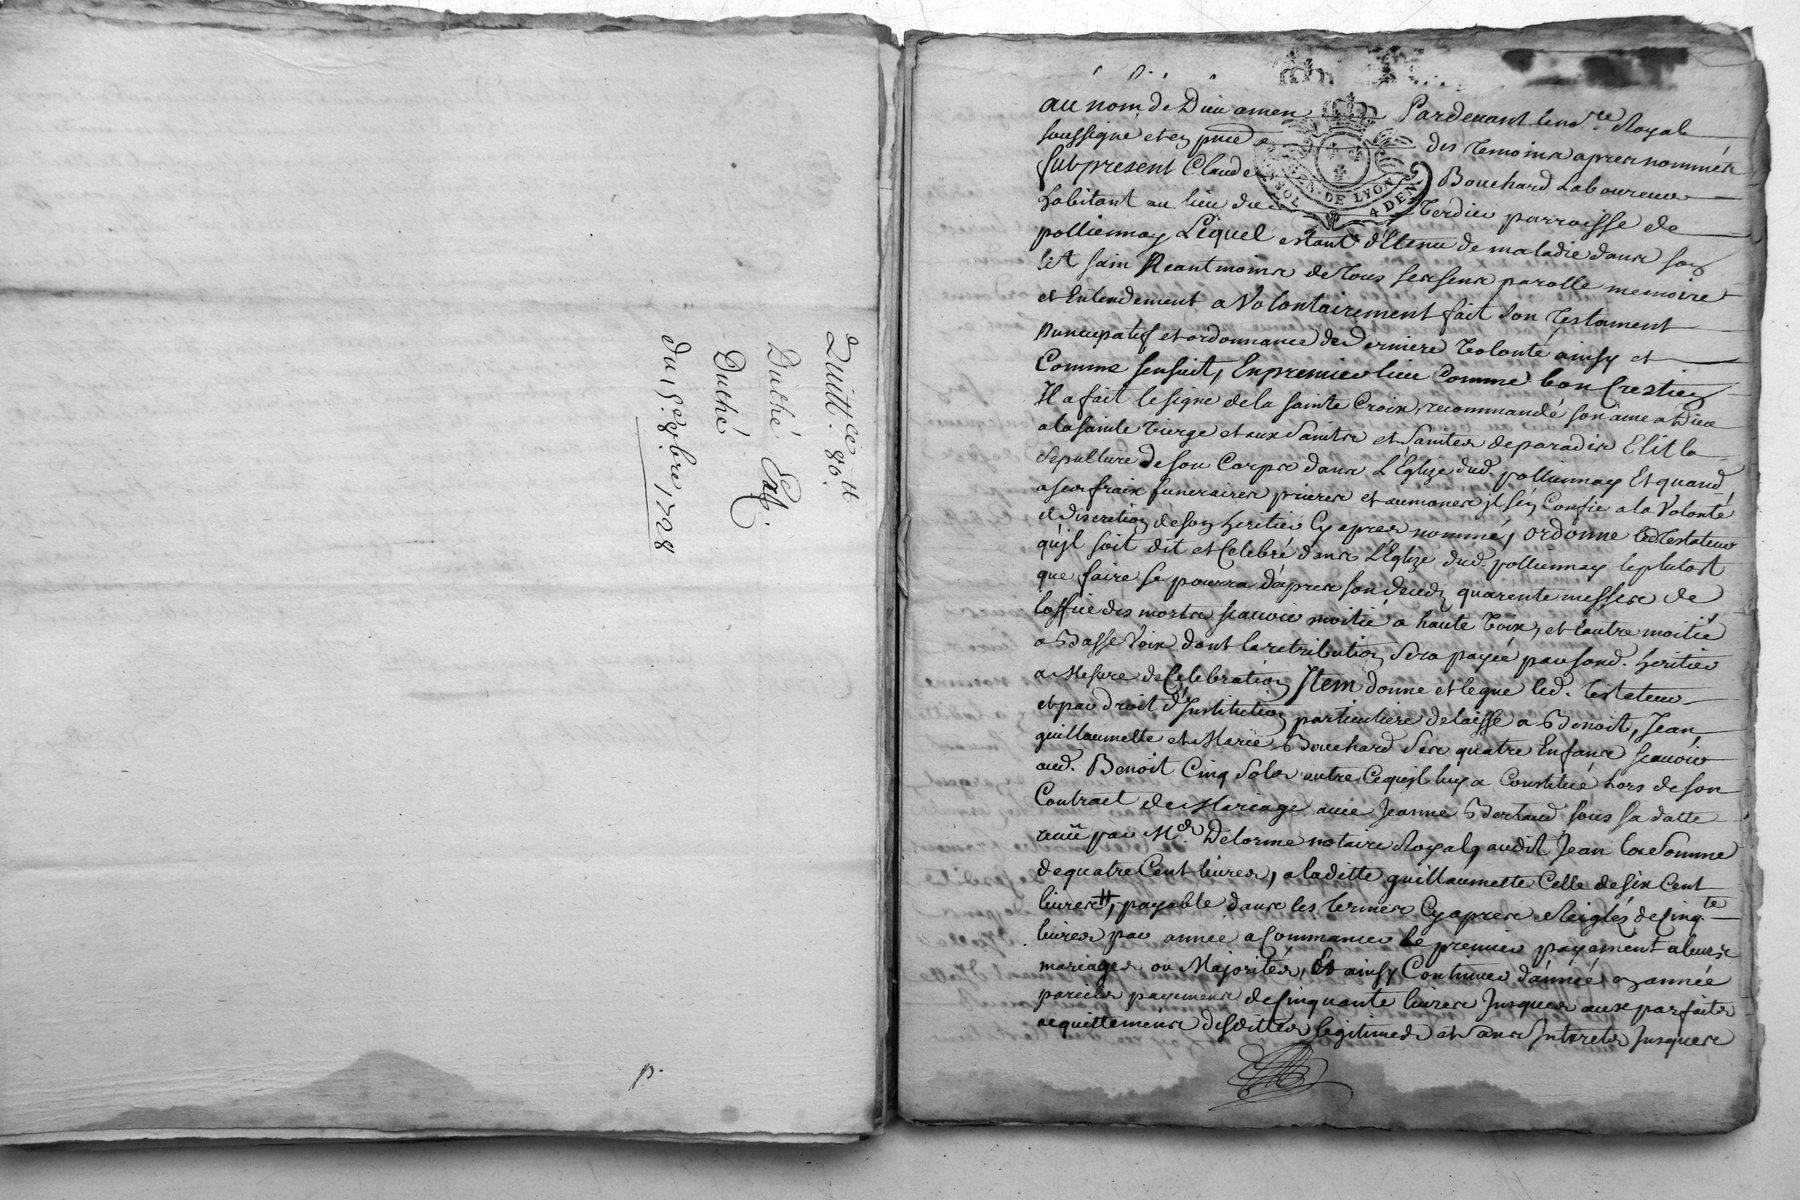 Quitt.ce 80.tt
Duthé
Duthé
du 15.e 8bre 1728
p.
au nom de Dieu amen Pardevant le no.re Royal
soussigné et en pnce des temoins apres nommés
fut present Claude Bouchard Laboureur
habitant au lieu du Verdier parroisse de
pollionnay Lequel estant détenu de maladie dans son
lit sain Neantmoins de tous ses sens parolle memoire
et Entendement a Volontairement fait son testament
Nuncupatif et ordonnance de Derniere Volonté ainsy et
Comme sensuit, En premier lieu Comme bon Crestien
Il a fait le signe de la sainte Croix, recommandé son ame a Dieu
a la sainte Vierge et aux Saints et Saintes de paradis Elit la
sepulture de son Corps dans L'Eglize dud. pollionnay Et quand
a ses fraix funeraires prieres et aumones jl s'en Confie a la Volonté
et discretion de son heritier Cy apres nommé, ordonne led testateur
qu'jl soit dit et Celebré dans L'Eglize dud. pollionnay le plutost
que faire se pourra d'apres son deceds quarente messes de
l'office des morts scauoir moitié a haute Voix, et l'autre moitié
a Basse Voix dont la retribution sera payée par sond. heritier
a Mesure de Celebration Item donne et legue led. testateur
et par droit d'Institution particuliere delaisse a Benoit, Jean,
guillaumette et Marie Bouchard ses quatre Enfans scauoir
aud. Benoit Cinq Sols outre Ce qu'jl luy a Constitué hors de son
Contract de Mariage auec Jeanne Bertaud sous sa datte
receu par M.e Delorme notaire Royal, audit Jean la Somme
de quatre Cent liures, a laditte guillaumette Celle de six Cent
liures tt, payable dans les termes Cy apres Reiglés de Cinq.te
liures par année a Commancer le premier payement a leurs
mariages ou Majorités, Et ainsy Continuer d'année en année
pareils payemens de Cinquante liures Jusques aux parfaits
acquittemens desdittes legitimes et sans Interets Jusques